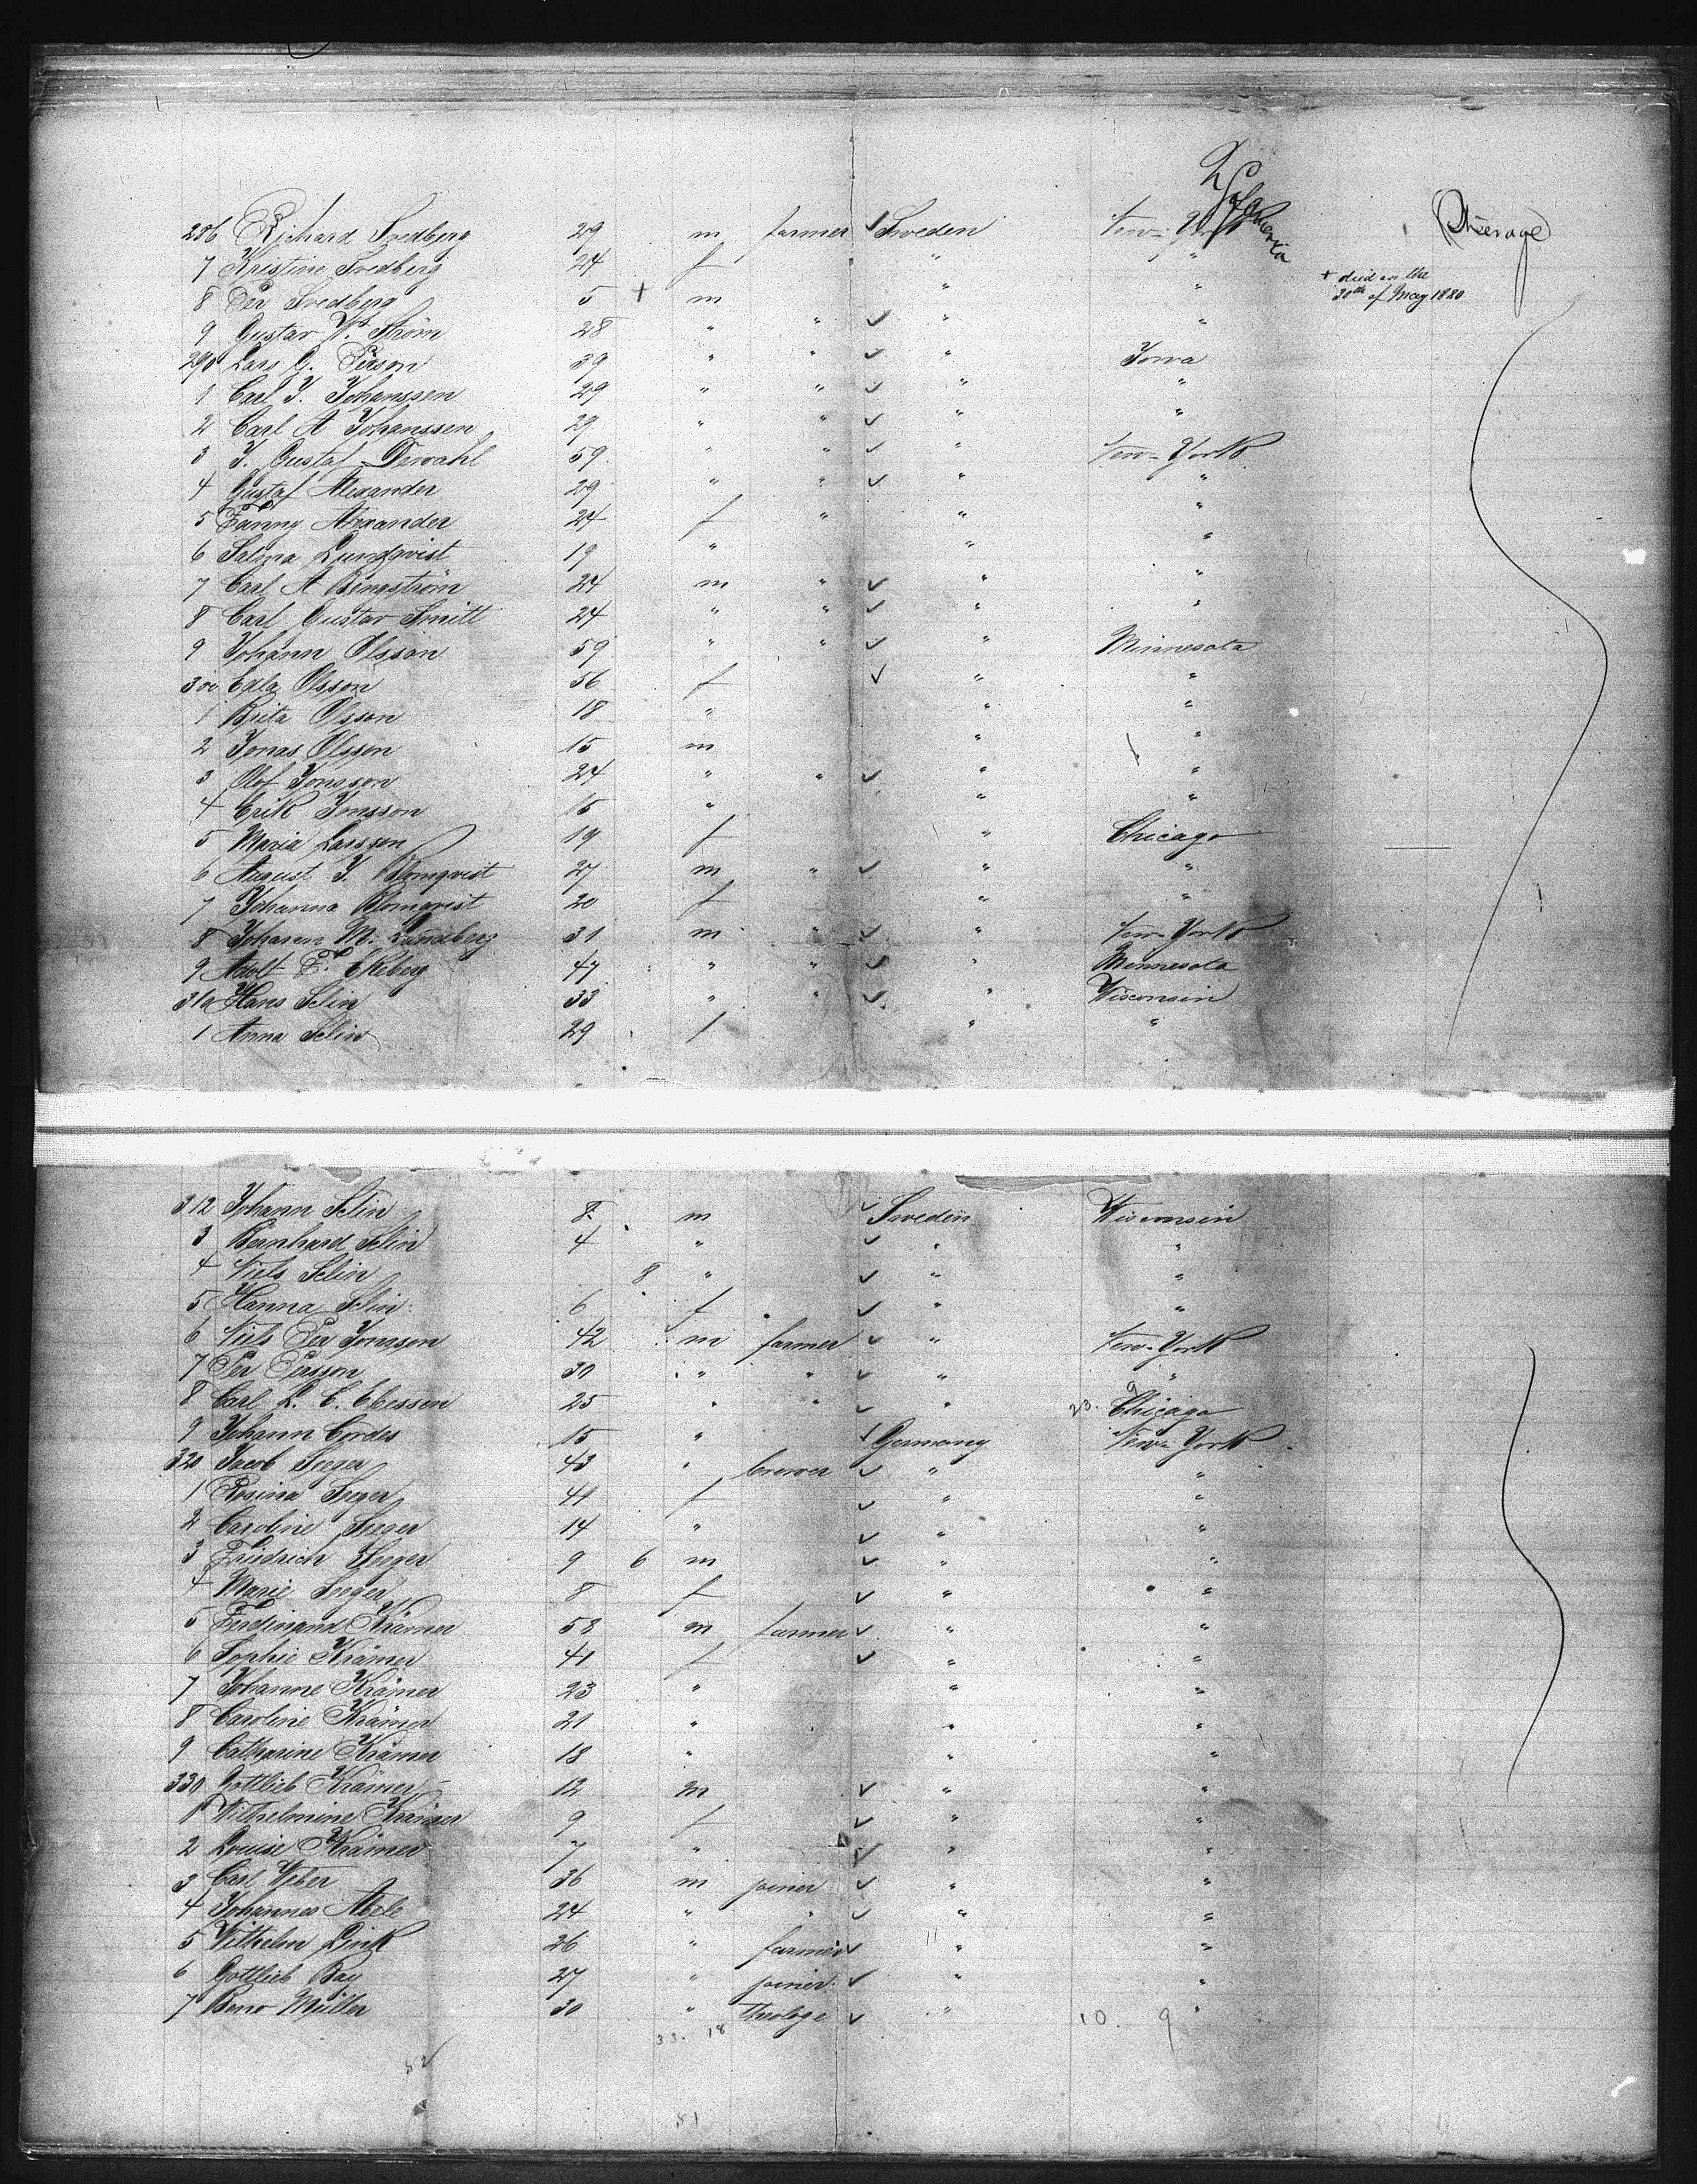 Steerage
286 Richard Svedberg 29 m farmer ✓ Sweden New-York
7 Kristine Svedberg 24 f " "
8 Per Svedberg 5 + m " " + died on the
30th of May 1880
9 Gustav W. Ström 28 " " ✓ " "
290 Lars G. Person 39 " " ✓ " Iowa
1 Carl J. Johanssen 29 " " ✓ " "
2 Carl A Johanssen 29 " " ✓ " "
3 J. Gustaf Dewahl 59 " " ✓ " New-York
4 Gustaf Alexander 29 " " ✓ " "
5 Fanny Alexander 24 f " " "
6 Selma Lundqvist 19 " " "
7 Carl A Bengström 24 m " ✓ " "
8 Carl Gustav Smitt 24 " " ✓ " "
9 Johann Olsson 59 " " ✓ " Minnesota
300 Edla Olsson 56 f ✓ " "
1 Brita Olsson 18 " " "
2 Jonas Olsson 15 m " "
3 Olof Jonsson 24 " " ✓ " "
4 Erik Jonsson 15 " " "
5 Maria Larsson 19 f " Chicago
6 August J. Blomqvist 27 m " ✓ " "
7 Johanna Blomqvist 20 f " "
8 Johann M. Lundberg 31 m " ✓ " New-York
9 Adolf E. Ekeberg 47 " " ✓ " Minnesota
310 Hans Selin 33 " " ✓ " Wisconsin
1 Anna Selin 29 f " "
312 Johann Selin 8 m ✓ Sweden Wisconsin
3 Bernhard Selin 4 " ✓ " "
4 Niels Selin 8 " ✓ " "
5 Hanna Selin 6 f ✓ " "
6 Niels Per Jonsson 42 m farmer ✓ " New-York
7 Per Persson 30 " " ✓ " "
8 Carl L. C. Ebessen 25 " " ✓ " 23. 9 Chicago
9 Johann Cordes 15 " ✓ Germany New-York
320 Jacob Seeger 43 " brewer ✓ " "
1 Rosina Seeger 41 f ✓ " "
2 Caroline Seeger 14 " ✓ " "
3 Friedrich Seeger 9 6 m ✓ " "
4 Marie Seeger 8 f ✓ " "
5 Ferdinand Krämer 53 m farmer ✓ " "
6 Sophie Krämer 41 f ✓ " "
7 Johanne Krämer 23 " " "
8 Caroline Krämer 21 " " "
9 Catharine Krämer 18 " " "
330 Gottlieb Krämer 12 m ✓ " "
1 Wilhelmine Krämer 9 f ✓ " "
2 Louise Krämer 7 " ✓ " "
3 Carl Weber 36 m joiner ✓ " "
4 Johannes Abele 24 " " ✓ " "
5 Wilhelm Link 26 " farmer ✓ 11 " "
6 Gottlieb Bay 27 " joiner ✓ " "
7 Beno Müller 30 " theologe ✓ " "
33. 18 10. 9
52
51